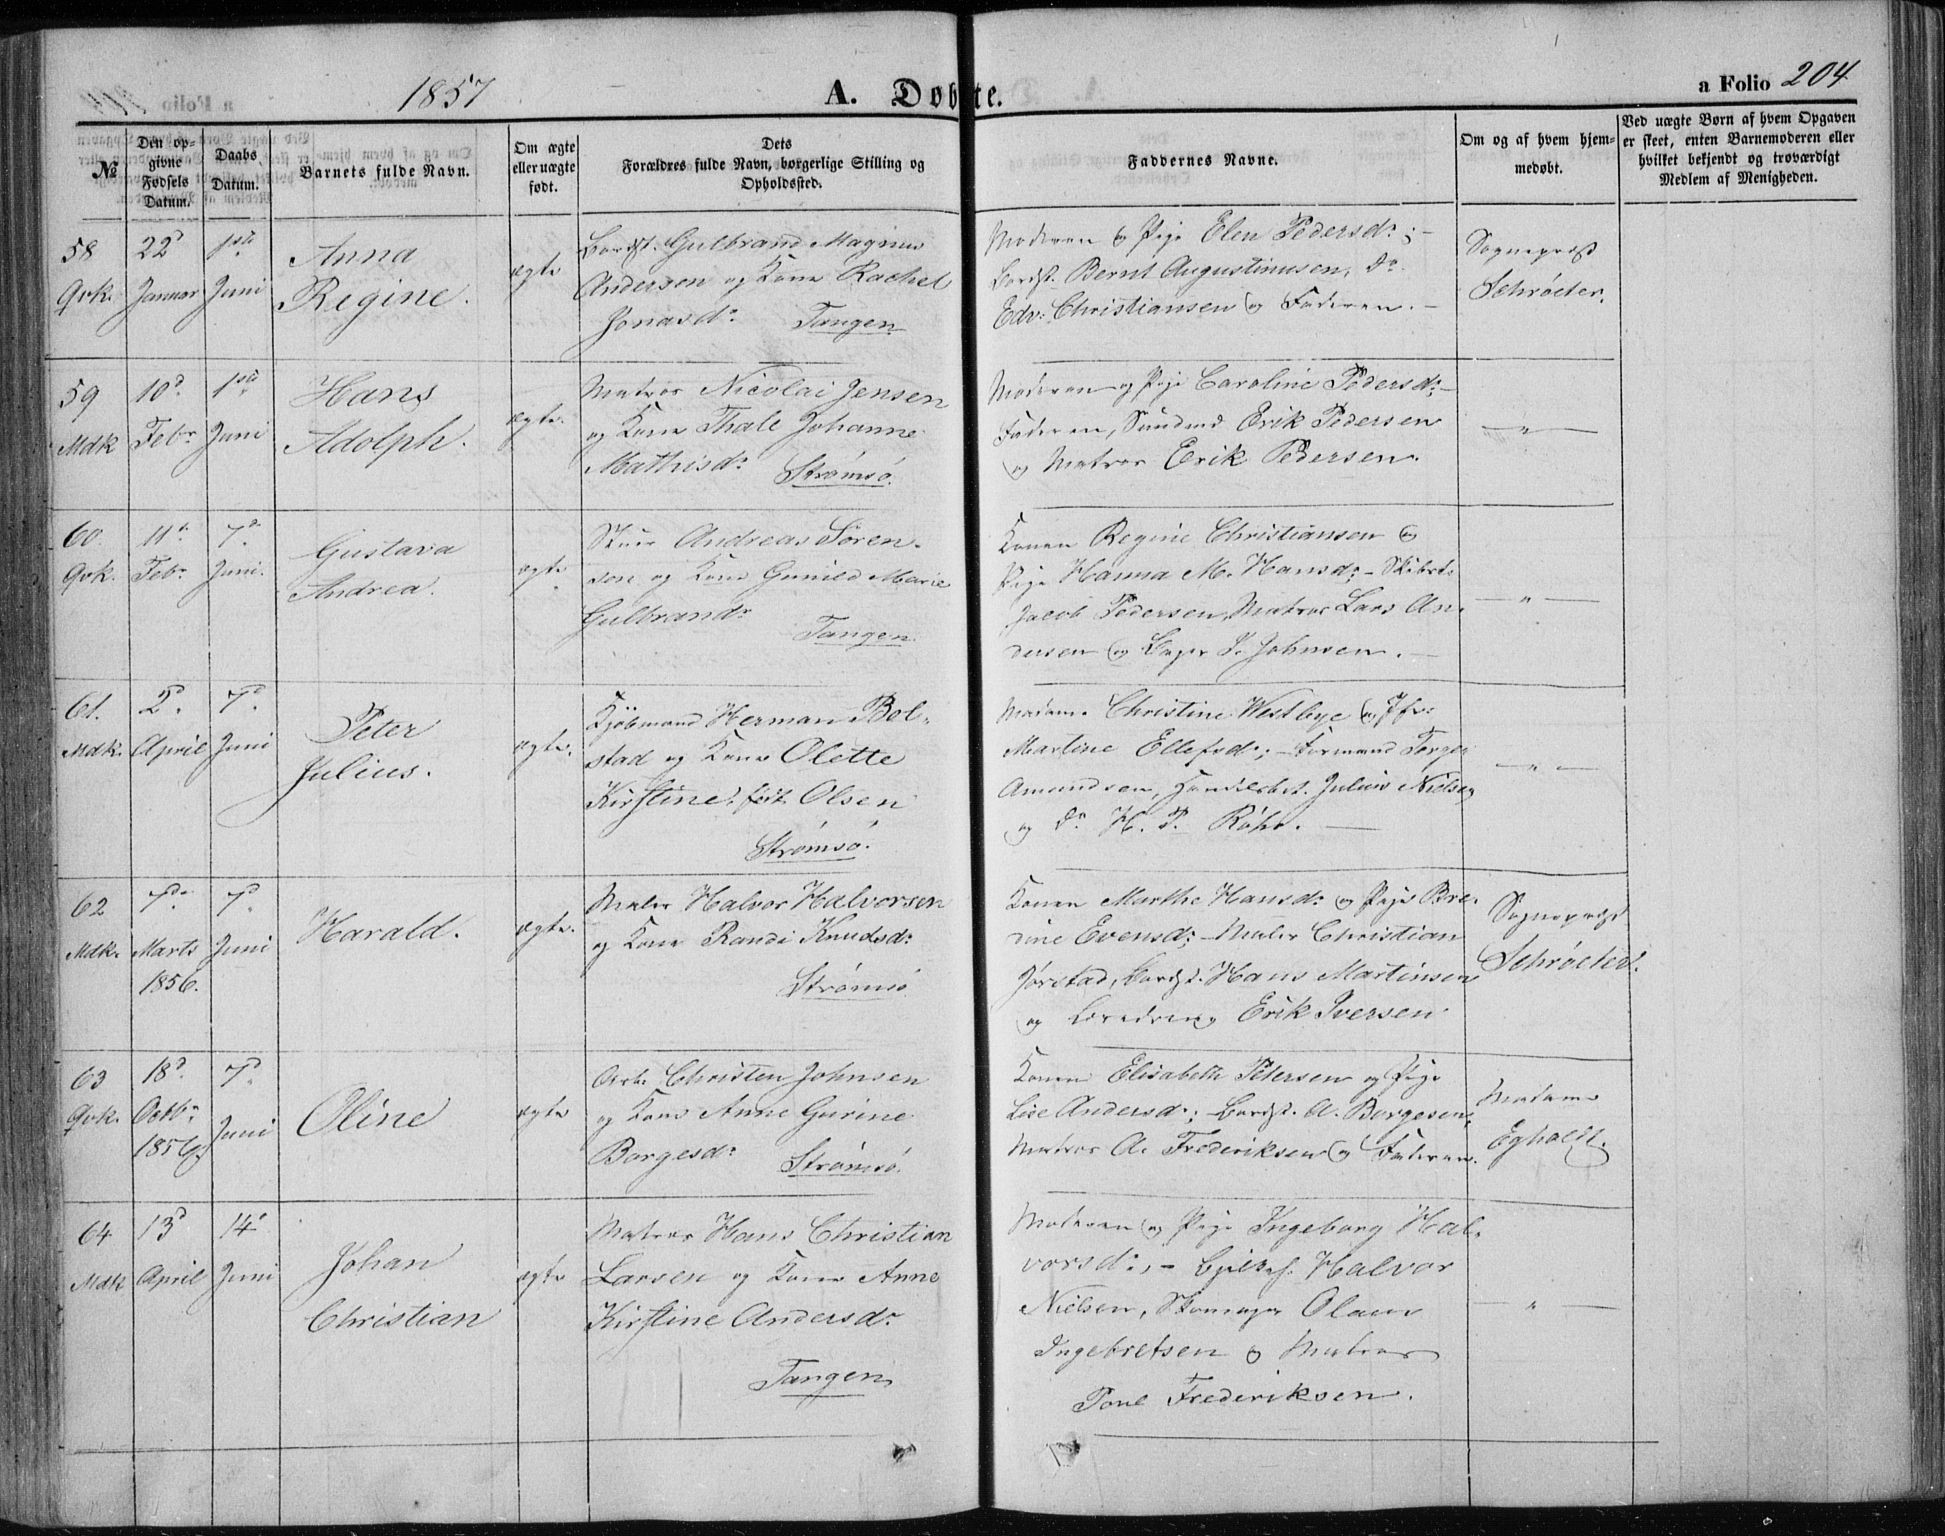 1857
A. Døbte.
a Folio 204
№
Den op-
givne
Fødsels
Datum.
Daabs
Datum.
Barnets fulde Navn.
Om ægte
eller uægte
født.
Dets
Forældres fulde Navn, borgerlige Stilling og
Opholdssted.
Faddernes Navne.
Om og af hvem hjem-
medøbt.
Ved uægte Børn af hvem Opgaven
er skeet, enten Barnemoderen eller
hvilket bekjendt og troværdigt
Medlem af Menigheden.
58
Qvk.
22d
Januar
1ste
Juni
Anna
Regine.
ægte
Bordst. Gulbrand Magnus
Anderson og Kone Rachel
Jonasdr. Tangen
Moderen og Pige Elen Pedersdr; -
Bordst. Bernt Augustinusen, Do.
Edv: Christiansen og Faderen. -
Sognepræst
Schröeter.
59
Mdk
10d.
Febr
1ste
Juni
Hans
Adolph.
ægte.
Matros Nicolai Jensen
og Kone Thale Johanne
Mathisdr. Strømsö.
Moderen og Pige Caroline Pedersdr. -
Faderen, Sømand Erik Pedersen
og Matros Erik Pedersen.
— " —
60.
Qvk.
11te
Febr
7d.
Juni.
Gustava
Andrea.
ægte
Andreas Sören-
sen og Kone Gunild Marie
Gulbrandr. Tangen
Konen Regine Christiansen og
Pige Hanna M. Hansdr. - Skibst.
Jacob Pedersen, Matros Lars An-
dersen og J. Johnsen. —
— " —
61.
Mdk.
2d.
April
7d.
Juni
Peter
Julius.
ægte.
Kjöbmand Herman Bol-
stad og Kone Olette
Kirstine, født Olsen
Strømsö.
Madame Christine Westbye og Jfr:
Martine Ellefsdr.; - Formand Torger
Amundsen, Handelsbet. Julius Nielsen
og Do. H. P. Röhr. —
— " —
62
Mdk.
7de
Marts
1856.
7d
Juni
Harald.
ægte.
Maler Halvor Halvorsen
og Kone Randi Knudsdr.
Strømsö
Konen Marthe Hansdr. og Pige Bre-
dine Evensdr; - Maler Christian
Jörstad, Bordst. Hans Martinsen
og Erik Iversen
Sognepræst
Schröeter.
63
Qvk.
18d.
Octbr.
1856
7d
Juni
Oline
ægte
Arb. Christen Johnsen
og Kone Anne Gurine
Borgesdr. Strømsö.
Konen Elisabeth Petersen og Pige
Lise Andersdr.; - Bordst. A. Borgesen,
Matros A. Frederiksen og Faderen.
Madame
Egholdt.
64
Mdk
13d
April
14d
Juni
Johan
Christian
ægte
Matros Hans Christian
Larsen og Kone Anne
Kirstine Andersdr.
Tangen
Moderen og Pige Ingeborg Hal-
vorsdr., - Halvor
Nielsen, Skomager Olaus
Ingebretsen og Matros
Poul Frederiksen.
— " —